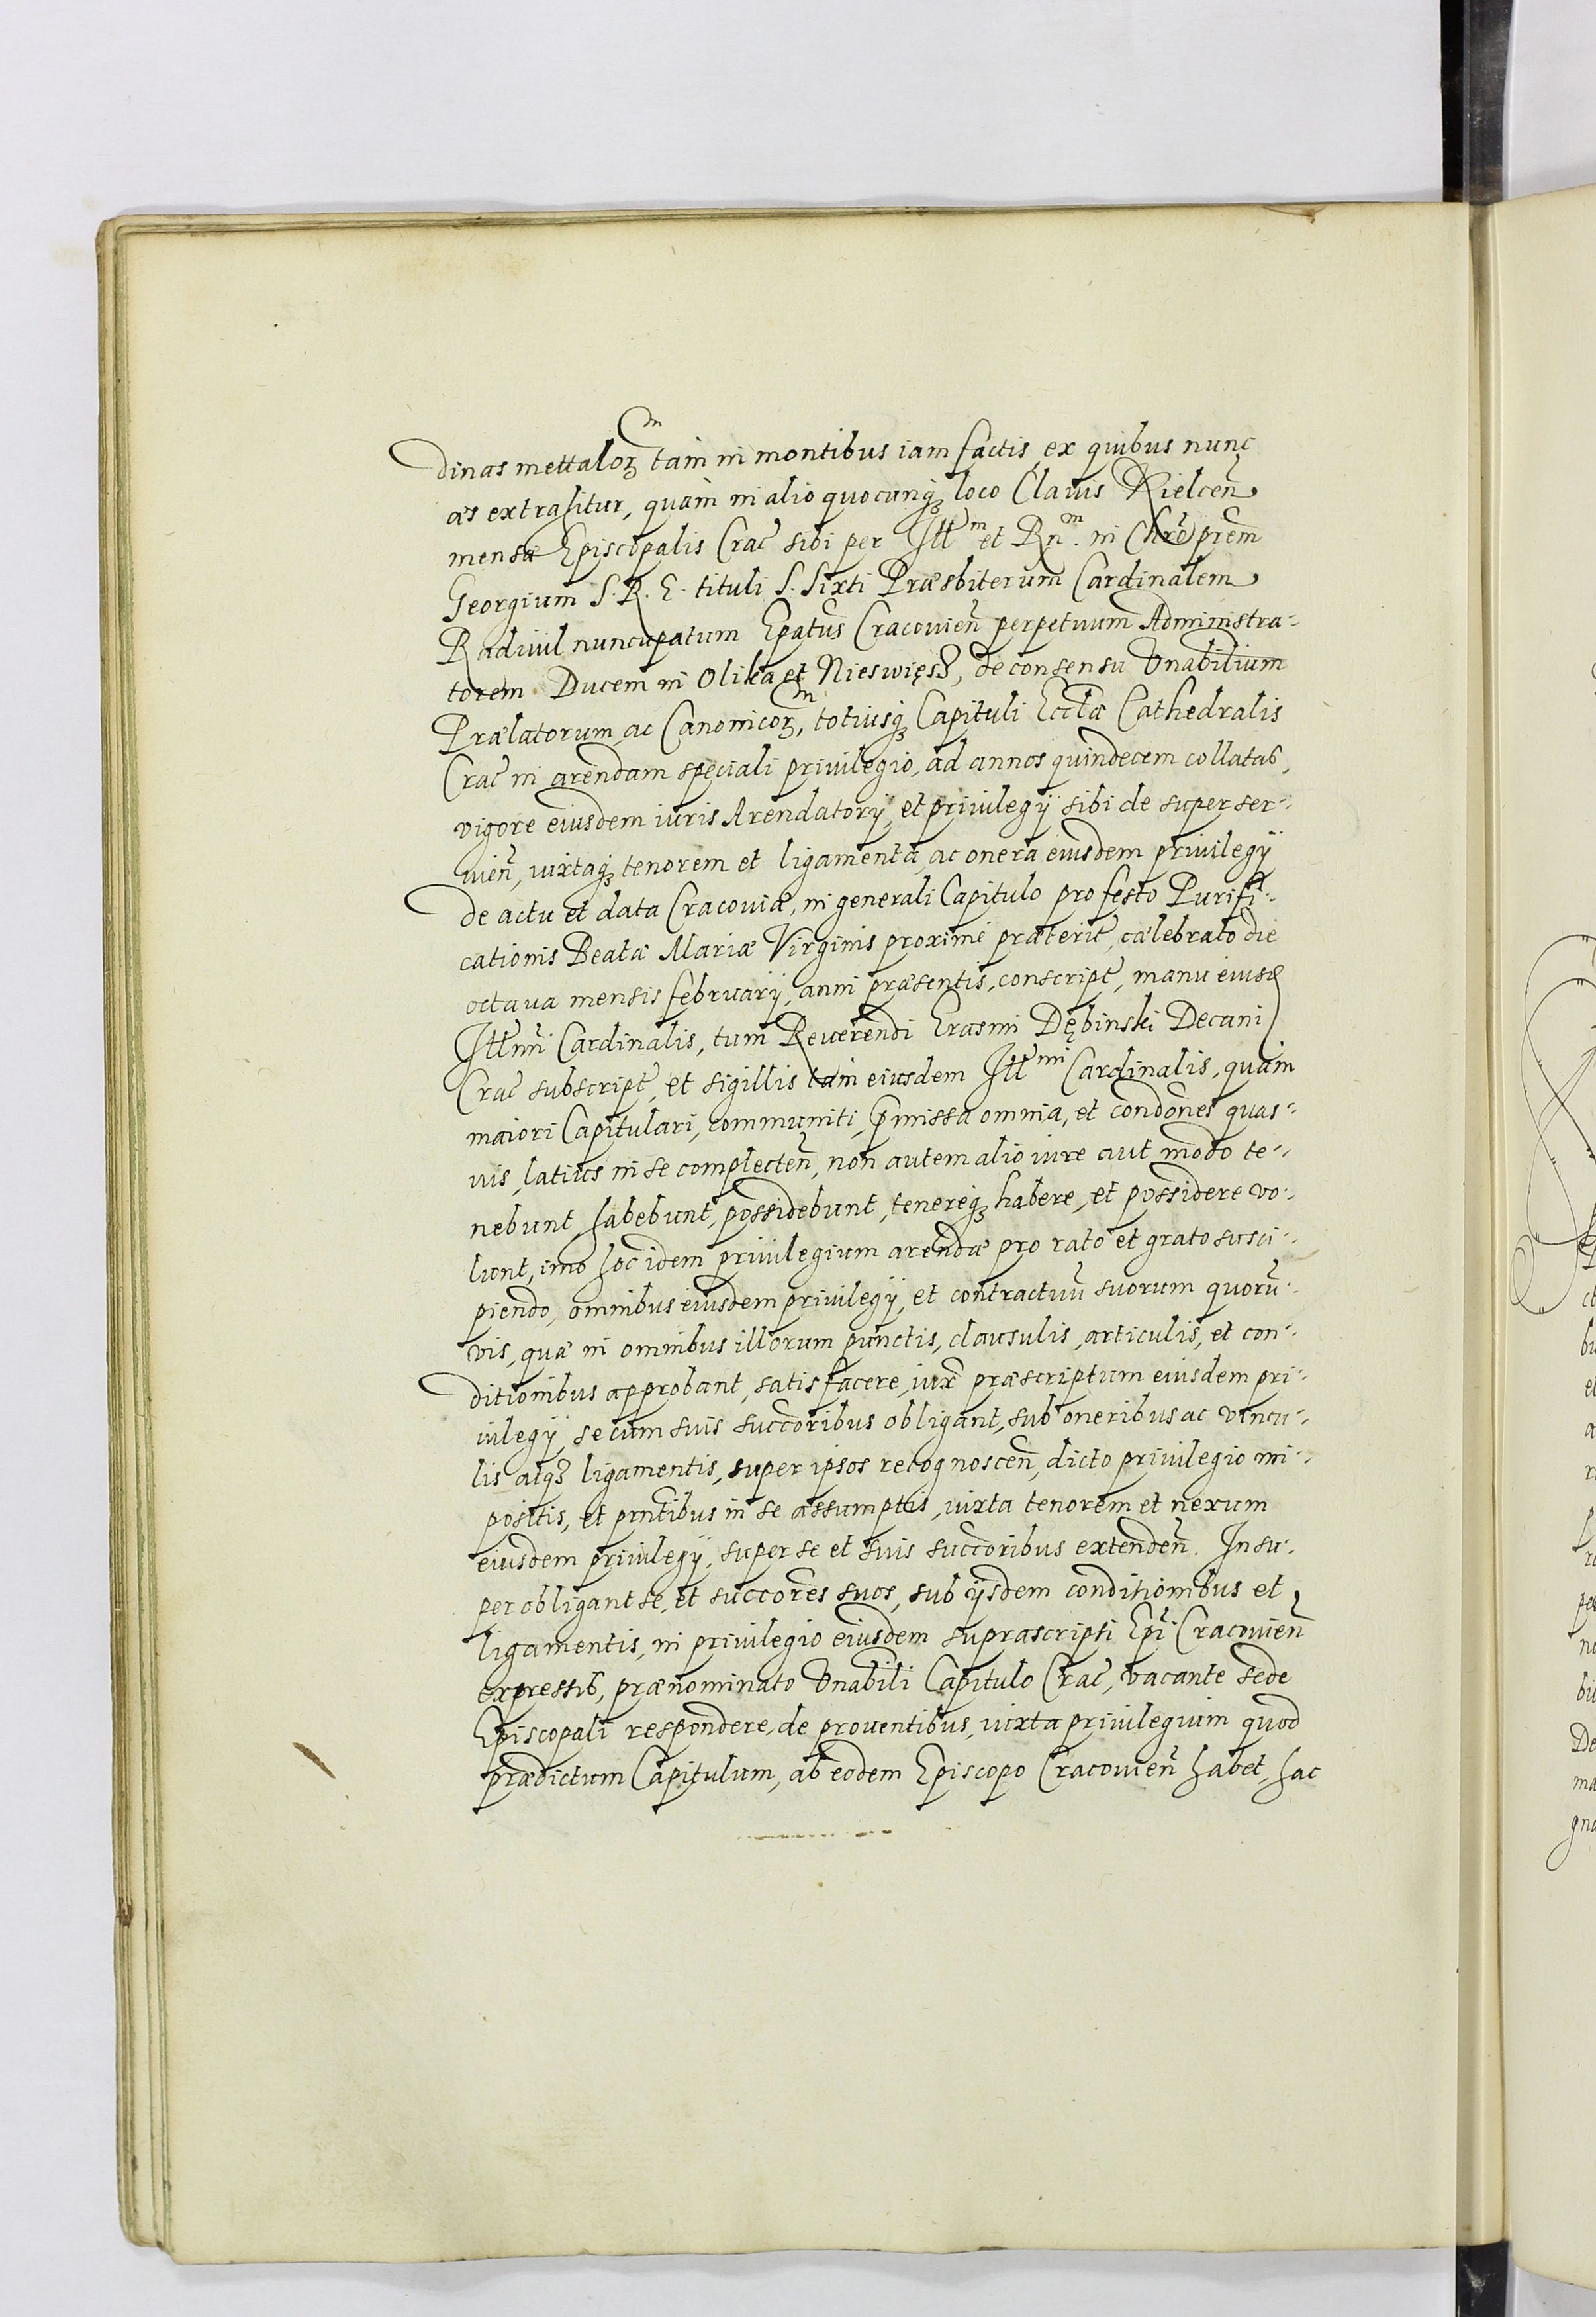 dinas mettaloꝝ tam in montibus iam factis, ex quibus nunc
æs extrahitur, quàm in alio quocunqꝫ loco Clauis Kielcen̄
mensæ Episcopalis Crac̄ sibi per Ill̄m et Rn̄.m in Chrō prēm
Georgium S. R. E. tituli S. Sixti Præsbiterum Cardinalem
Radiuil nuncupatum Epatūs Cracouien̄ perpetuum Administra-
torem Ducem in Olika et Nieswięsz, de consensu Vnabilium
Prælatorum ac Canonicoꝝ, totiusqꝫ Capituli Eccl̄æ Cathedralis
Crac̄ in arendam speciali priuilegio, ad annos quindecem collatas,
vigore eiusdem iuris Arendatorÿ, et priuilegÿ sibi de super ser-
uien̄, iuxtaqꝫ tenorem et ligamenta, ac onera eiusdem priuilegÿ
de actu et data Cracouiæ, in generali Capitulo pro festo Purifi-
cationis Beatæ Mariæ Virginis proximè præterit̄, cælebrato die
octaua mensis februarÿ, anni præsentis, conscript̄, manu eiusd̄
Ill̄mi Cardinalis, tum Reuerendi Erasmi Dębinski Decani
Crac̄ subscript̄, et sigillis tam eiusdem Ill̄mi Cardinalis, quàm
maiori Capitulari, communiti, p̄missa omnia, et condōnes quas-
uis, latius in se complecten̄, non autem alio iure aut modo te-
nebunt, habebunt, possidebunt, tenereqꝫ habere, et possidere vo-
lunt, imo hoc idem priuilegium arendæ pro rato et grato susci-
piendo, omnibus eiusdem priuilegÿ, et contractuū suorum quorū-
vis, quæ in omnibus illorum punctis, clausulis, articulis, et con-
ditionibus approbant, satis facere, iux̄ præscriptum eiusdem pri-
uilegÿ, se cum suis succōribus obligant, sub oneribus ac vincu-
lis atqꝫ ligamentis, super ipsos recognoscen̄, dicto priuilegio im-
positis, et prn̄tibus in se assumptis, iuxta tenorem et nexum
eiusdem priuilegÿ, super se et suis succōribus extenden̄. Insu-
per obligant se, et succōres suos, sub ÿsdem conditionibus et
ligamentis, in priuilegio eiusdem suprascripti Epī Cracouien̄
expressis, prænominato Vnabili Capitulo Crac̄, vacante sede
Episcopali respondere, de prouentibus, iuxta priuilegium quod
prædictum Capitulum, ab eodem Episcopo Cracouien̄ habet, hac